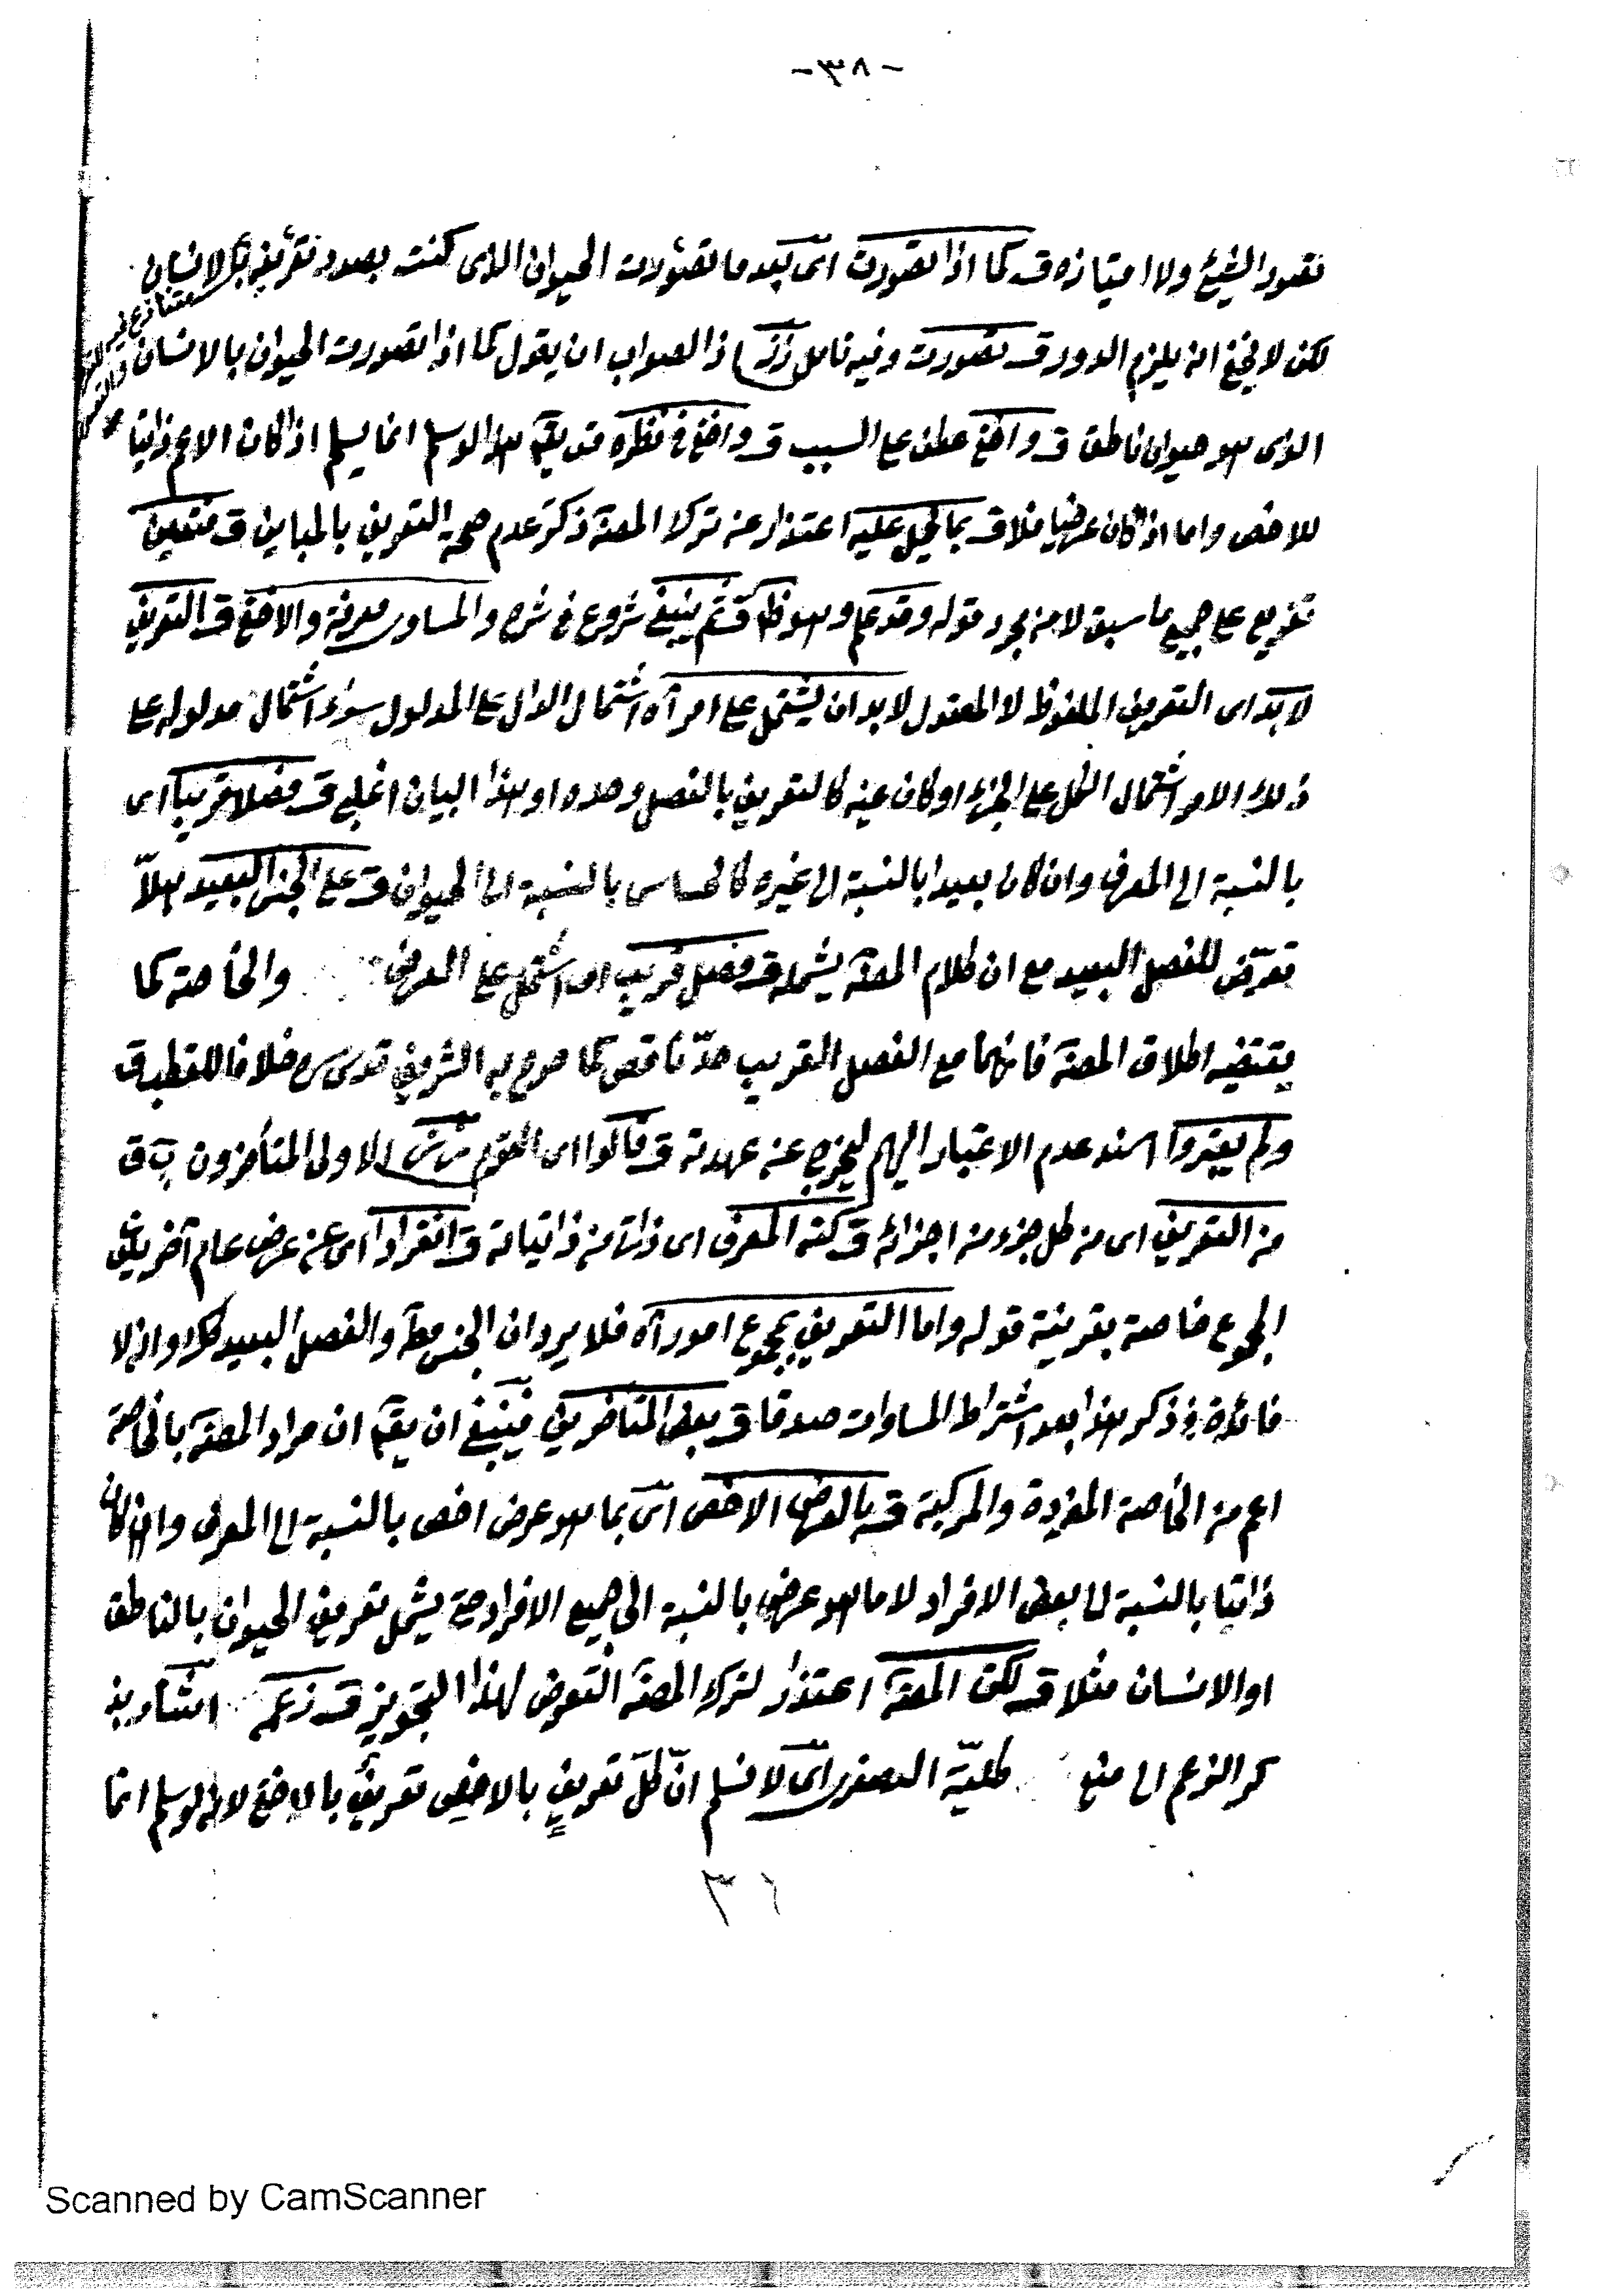 -٣٨-
تصور الشيئ ولا امتيازه قـ كما اذا تصورت اى بعد ما تصورت الحيوان الذى كنت بصدد تعريفه بالانسان
لكن لا يخفى انه يلزم الدور قـ تصورت وفيه تامل اذ الصواب ان يقول كما اذا تصورت الحيوان بالانسان
الذى هو حيوان ناطق قـ واخفى عطف على السبب قـ واخفى فى نظره قد يقـ هذا لو سلم انما يسلم اذا كان الاعم ذاتيا
للاخص واما اذا كان عرضيا فلا قـ بما يحمل عليه اعتذار عن ترك المصـ ذكر عدم صحة التعريف بالمباين قـ فتعين
تفريع على جميع ما سبق لا من مجرد قوله وقد علم وهو ظـ قـ ثم ينبغى شروع فى شرح والمساوى معرفة والاخفى قـ التعريف
لا بد اى التعريف الملفوظ لا المعقول لا بد ان يشتمل على امر آه اشتمال الدال على المدلول سواء اشتمال مدلوله على
ذلك الامر اشتمال الكل على الجزء او كان عينه كالتعريف بالفصل وحده او هذا البيان اغلبى قـ فصلا قريبا اى
بالنسبة الى المعرف وان كان بعيدا بالنسبة الى غيره كالحساس بالنسبة الى الحيوان قـ على الجنس البعيد هلاّ
تعرّض للفصل البعيد مع ان كلام المصـ يشمله قـ فصل قريب اى اشتمل على العرض والخاصة كما
يقتضيه اطلاق المصـ فانهما مع الفصل القريب حدّ ناقص كما صرح به الشريف قدس سره خلافا للقطب قـ
ولم يعتبروا اسند عدم الاعتبار اليهم ليخرج عن عهدته قـ قالوا اى القوم الاولى المتأخرون قـ
من التعريف اى من كل جزء من اجزائه قـ كنه المعرف اى ذات من ذاتياته قـ انفرادا اى عن عرض عام آخر
المجموع خاصة بقرينة قوله واما التعريف بمجموع امور آه فلا يرد ان الجنس مطـ والفصل البعيد كذلك وانه لا
فائدة فى ذكر هذا بعد اشتراط المساوات صدقا قـ بعض المتأخرين فينبغى ان يقـ ان مراد المصـ بالخاصة
اعم من الخاصة المفردة والمركبة قـ بالعرض الاخص اى بما هو عرض اخص بالنسبة الى المعرف وان كان
ذاتيا بالنسبة الى بعض الافراد لا ما هو عرض بالنسبة الى جميع الافراد حتى يشمل تعريف الحيوان بالناطق
او الانسان مثلا قـ لكن المصـ اعتذار لترك المصـ التعرض لهذا التجويز قـ زعم اشار بذ
كر الزعم الى منع كليّة الصغرى اى لا نسلم انّ كلّ تعريفٍ بالاخص تعريفٌ بالاخفى لانه لو سلم انما
٣٦
Scanned by CamScanner